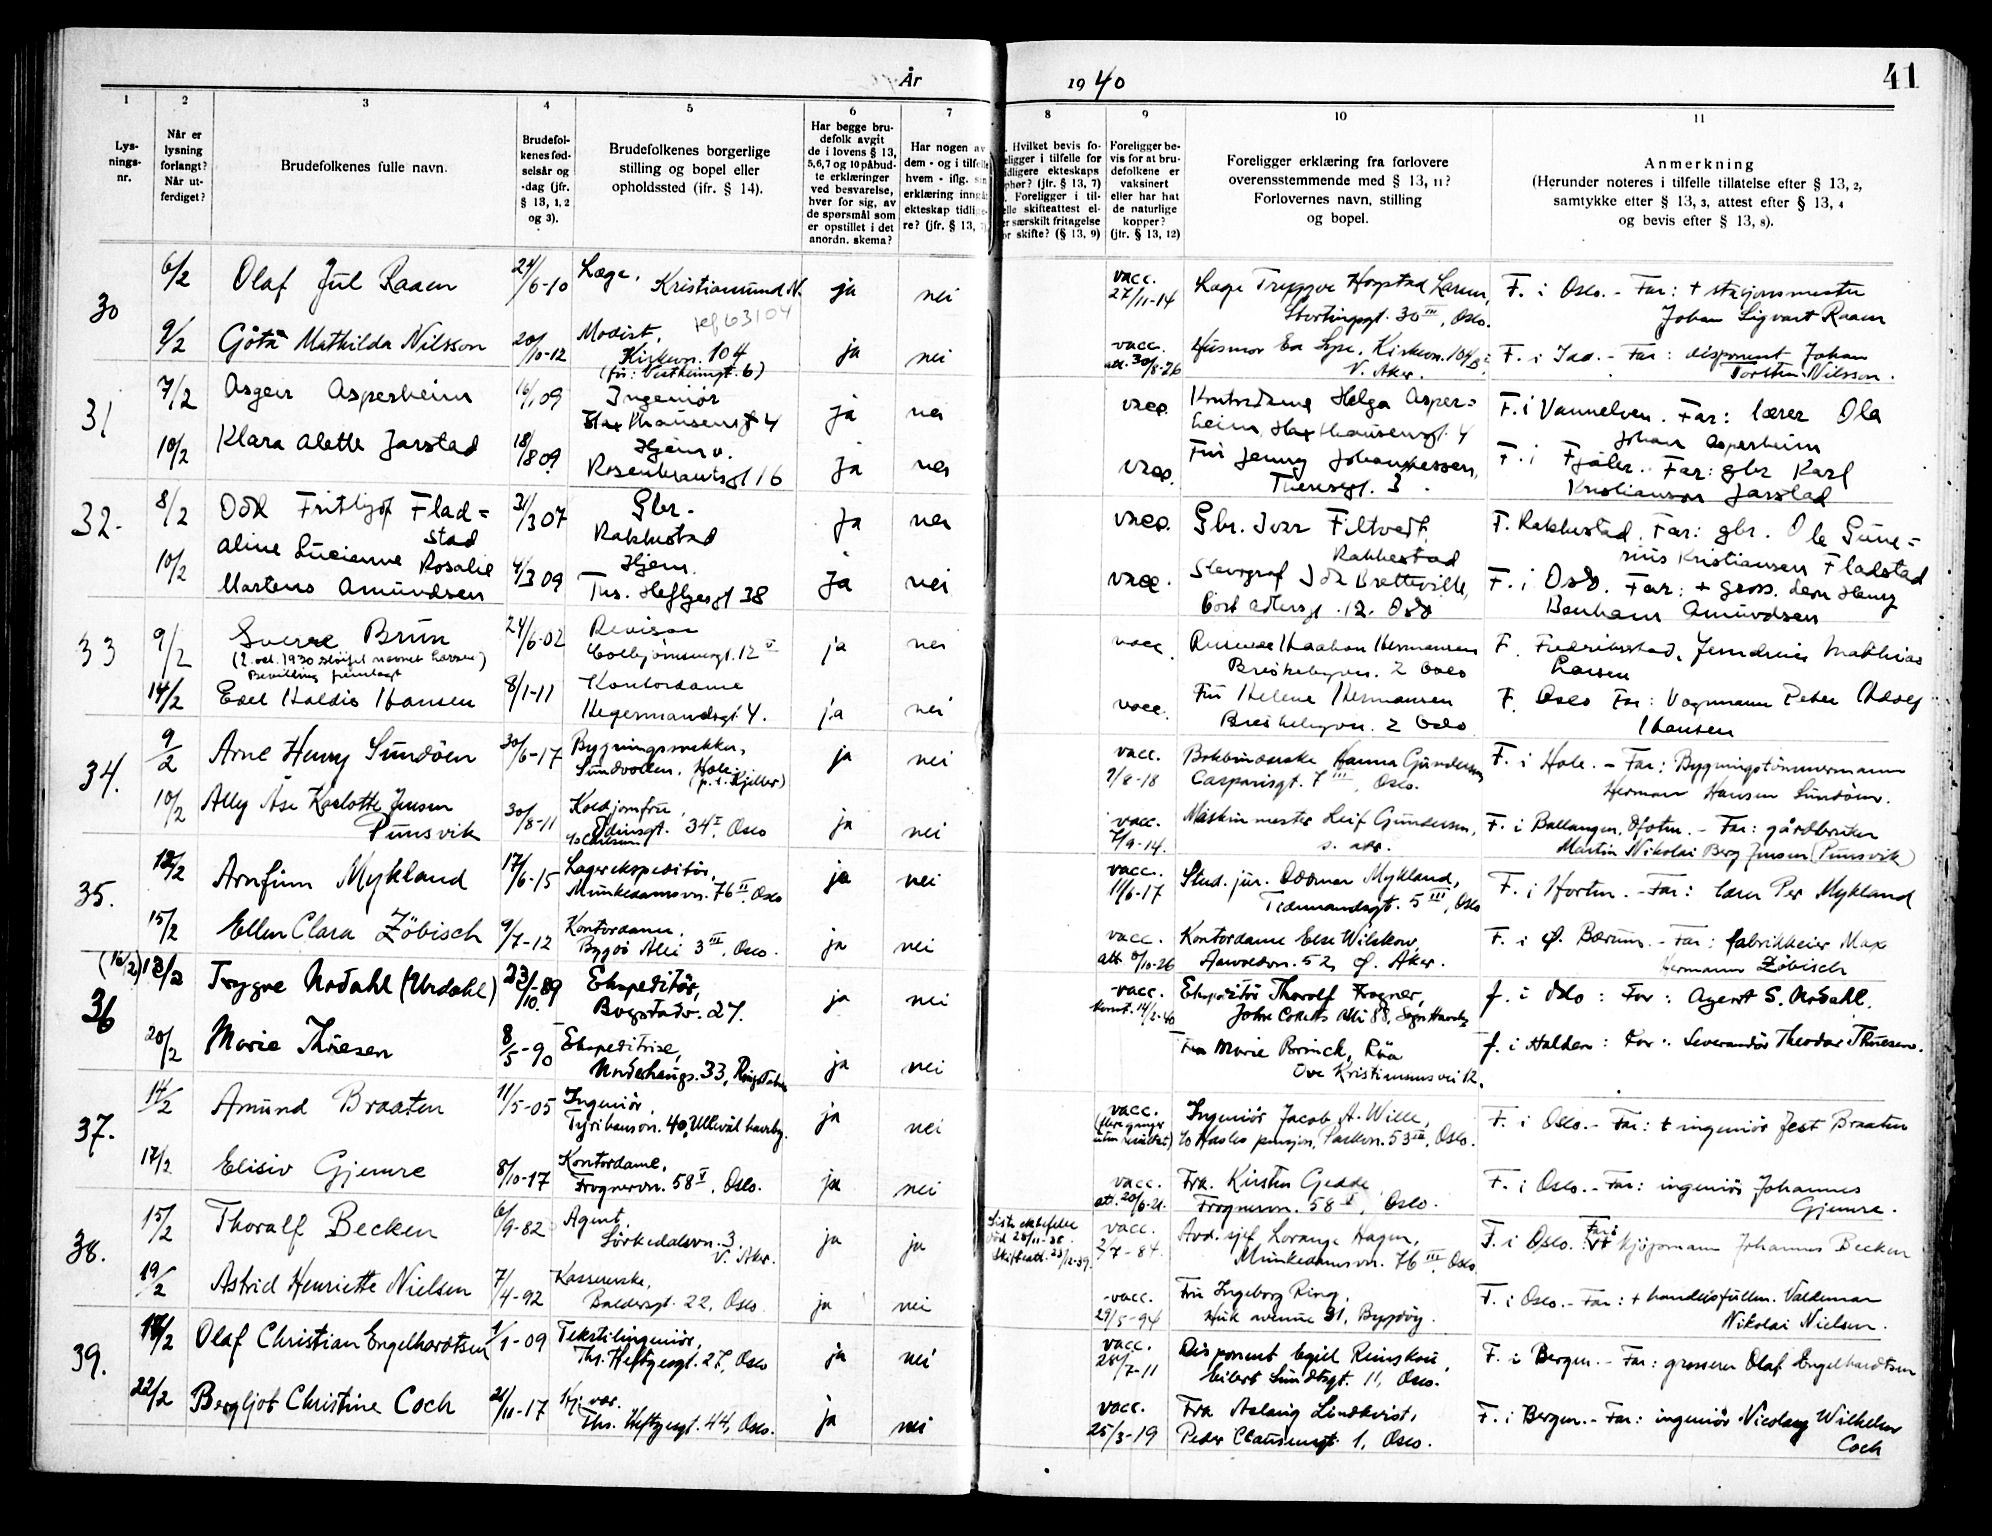 År 1940
41
1 2 3 4 5 6 7 8 9 10 11
Lys-
nings-
nr.
Når er
lysning
forlangt?
Når ut-
ferdiget?
Brudefolkenes fulle navn.
Brudefol-
kenes fød-
selsår og
-dag (jfr.
§ 13, 1, 2
og 3).
Brudefolkenes borgerlige
stilling og bopel eller
opholdssted (jfr. § 14).
Har begge bru-
defolk avgit
de i lovens § 13,
5,6,7 og 10 påbud-
te erklæringer
ved besvarelse,
hver for sig, av
de spørsmål som
er opstillet i det
anordn. skema?
Har nogen av
dem - og i tilfelle
hvem - iflg. sin
erklæring inngå
ekteskap tidlige-
re? (jfr. § 13,
Hvilket bevis fo-
religger i tilfelle for
tidligere ekteskaps
ophør? (jfr. § 13, 7)
Foreligger i til-
felle skifteattest el-
er særskilt fritagelse
or skifte? (§ 13, 9)
Foreligger be-
vis for at bru-
defolkene er
vaksinert
eller har hat
de naturlige
kopper?
(jfr. § 13, 12)
Foreligger erklæring fra forlovere
overensstemmende med § 13, 11?
Forlovernes navn, stilling
og bopel.
Anmerkning
(Herunder noteres i tilfelle tillatelse efter § 13, 2,
samtykke efter § 13, 3, attest efter § 13, 4
og bevis efter § 13, 8).
30
6/2 Olaf Jul Raaen 24/6-10 Læge, ja nei vacc. Læge Tryggve Hogstad Larsen, F. i Oslo. - Far: + stasjonsmester
Kristiansund N. 27/11-14 Stortingsgt. 30 III, Oslo. Johan Sigvart Raaen
9/2 Götа Mathilda Nilsson 20/10-12 Modist, ja nei vacc. Husmor Ea Lyse, Kirkevn. 104 F. i Idd. - Far: disponent Johan
Kirkevn. 104 att. 30/8-26 V. Aker. Torsten Nilsson.
(før: Vestheimgt. 6)
31
7/2 Asgeir Asperheim 16/1 09 Ingeniør ja nei vacc. Kontordame Helga Asper= F. i Vannelven. Far: lærer Ola
4 heim, 4 Johan Asperheim
10/2 Klara Alette Jarstad 18/8 09 Hjemv. ja nei vacc. Frk Jenny Johannessen, F. i Fjaler. Far: gbr Karl
Rosenkrantzgt 16 Theresgt. 3. Kristiansen Jarstad
32.
8/2 Odd Fritjof Flad= 31/3 07 Gbr. ja nei vacc. Gbr. Ivar Filtvedt, F. Rakkestad. Far: gbr. Ole Gune=
stad Rakkestad Rakkestad rius Kristiansen Fladstad
10/2 Aline Lucienne Rosalie 4/3 09 Hjem. ja nei vacc. Odd Brettville, F. i Oslo. Far: + gross. Leon Henry
Martens Amundsen Ths. Heftyesgt 38 Cort Adlersgt. 12. Oslo Amundsen
33
9/2 Sverre Brun 24/6-02 Revisor ja nei vacc Haakon Hermansen F. Fredriksstad. Mathias
(2. okt. 1930 sløifet navnet Larsen) Colbjørnsensgt. 12 V Briskebyvn. 2 Oslo Larsen
Bevilling fremlagt
14/2 Edel Haldis Hansen 8/1-11 Kontordame ja nei vacc. Fru Helene Hermansen F. Oslo Far: Vognmann Peter Adolf
Hegermannsgt. 4. Briskebyvn. 2 Oslo Hansen
34.
9/2 Arne Henry Sundöen 30/6-17 Bygningssnekker, ja nei vacc. Bokbinderske Hanna Gundersen F. i Hole. - Far: Bygningstømmermann
Sundvollen. Hole. 9/8-18 Casparisgt. 7 III, Oslo. Herman Hansen Sundöen.
(p.t. Kjeller)
10/2 Ally Åse Karlotte Jensen 30/8-11 Koldjomfru, ja nei vacc. Maskinmester Leif Gundersen, F. i Ballangen, Ofoten. - Far: gårdbruker
Punsvik Odinsgt. 34 I, Oslo 7/9-14. s. adr. Martin Nikolai Berg Jensen (Punsvik)
35.
12/2 Arnfinn Mykland 17/6-15 Lagerekspeditör, ja nei vacc. Stud. jur. Oddmar Mykland, F. i Horten. - Far: lærer Per Mykland
Munkedamsvn. 76 II, Oslo 11/6-17 Tidemandsgt. 5 III, Oslo
15/2 Ellen Clara Zöbisch 9/7-12 Kontordame, ja nei vacc. Kontordame Else Wilskow, F. i Ø. Bærum. - Far: fabrikkeier Max
Bygdö Allé 3 III, Oslo. att. 8/10-26 52, Ø. Aker. Hermann Zöbisch
36
(16/2) 13/2 Trygve Urdahl (Urdahl) 23/10-89 Ekspeditör, ja nei vacc. Ekspeditör Thorolf Frogner, f. i Oslo: Far: Agent S. Urdahl.
Bogstadv. 27. 14/2-40 John Colletts Allé 88,
20/2 Marie Thuesen 8/5-90 Ekspeditrise, ja nei Fru Marie Brinck, f. i Halden: Far: Leverandör Theodor Thuesen.
33, Ove Kristiansens vei 12.
37.
14/2 Amund Braaten 11/5-05 Ingeniör, ja nei vacc. Ingeniör Jacob A. Wille, F. i Oslo. - Far: + ingeniör Jest Braaten
Tyrihansvn. 40, Ullevål haveby. (flere ganger uten resultat) Parkvn. 53 III, Oslo.
17/2 Elisiv Gjemre 8/10-17 Kontordame, ja nei vacc. Fra. Kirsten Gedde F. i Oslo. - Far: ingeniör Johannes
Frognervn. 58 V, Oslo. att. 20/6-21. Frognervn. 58 V, Oslo. Gjemre.
38.
15/2 Thoralf Becken 6/9-82 Agent, ja ja Siste ektefelle vacc. Avd. sjef Lorange Hagen, F. i Oslo. Far: kjøpmann Johannes Becken
Sörkedalsvn. 3 död 20/11-38. 2/7-84. Munkedamsvn. 76 III, Oslo
V. Aker. Skifteatt. 23/12-39.
19/2 Astrid Henriette Nielsen 7/4-92 Kassererske, ja nei vacc. Fru Ingeborg Ring, F. i Oslo. - Far: + handelsfullm. Valdemar
Baldersgt. 22, Oslo. 29/5-94 Huk avenue 31, Bygdöy. Nikolai Nielsen.
39.
Olaf Christian Engelhardtsen 1/1-09 Tekstilingeniör, ja nei vacc. Disponent Egill Reimers F. i Bergen. - Far: grosserer Olaf Engelhardtsen
Ths. Heftyesgt. 27, Oslo 28/7-11 Eilert Sundtsgt. 11, Oslo.
22/2 Bergljot Christine Coch 21/11-17 Hj. vær. ja nei vacc. Fra Aslaug Lindkvist, F. i Bergen. - Far: ingeniör Nicolay Wilhelm
Ths. Heftyesgt. 44, Oslo. 25/3-19 Peder Clausensgt. 1, Oslo. Coch